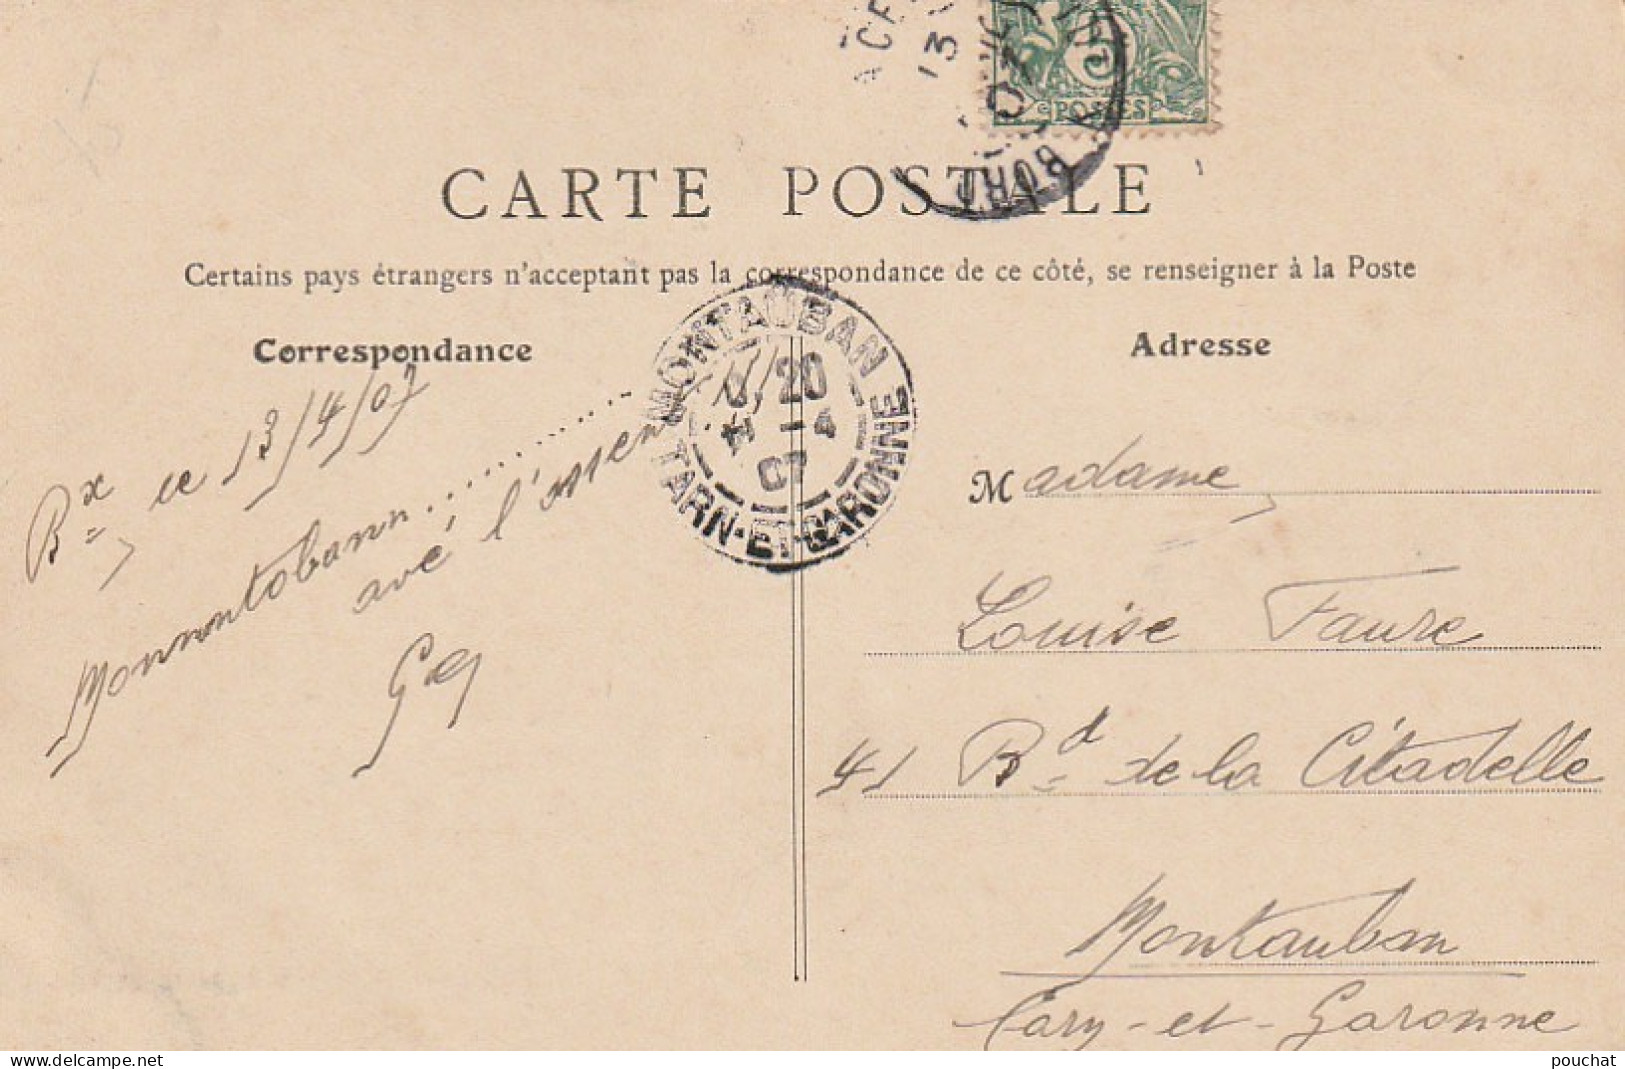 POSTES
BORD
13
07
CARTE POSTALE
Certains pays étrangers n'acceptant pas la correspondance de ce côté, se renseigner à la Poste
Correspondance
Adresse
MONTAUBAN
20
-4
07
TARN-ET-GARONNE
Bx, ce 13/4/07
Monnontobann.......
avé l'assen
Madame,
Louise Faure
41 Bd de la Citadelle
Montauban
Tarn-et-Garonne
pouchat